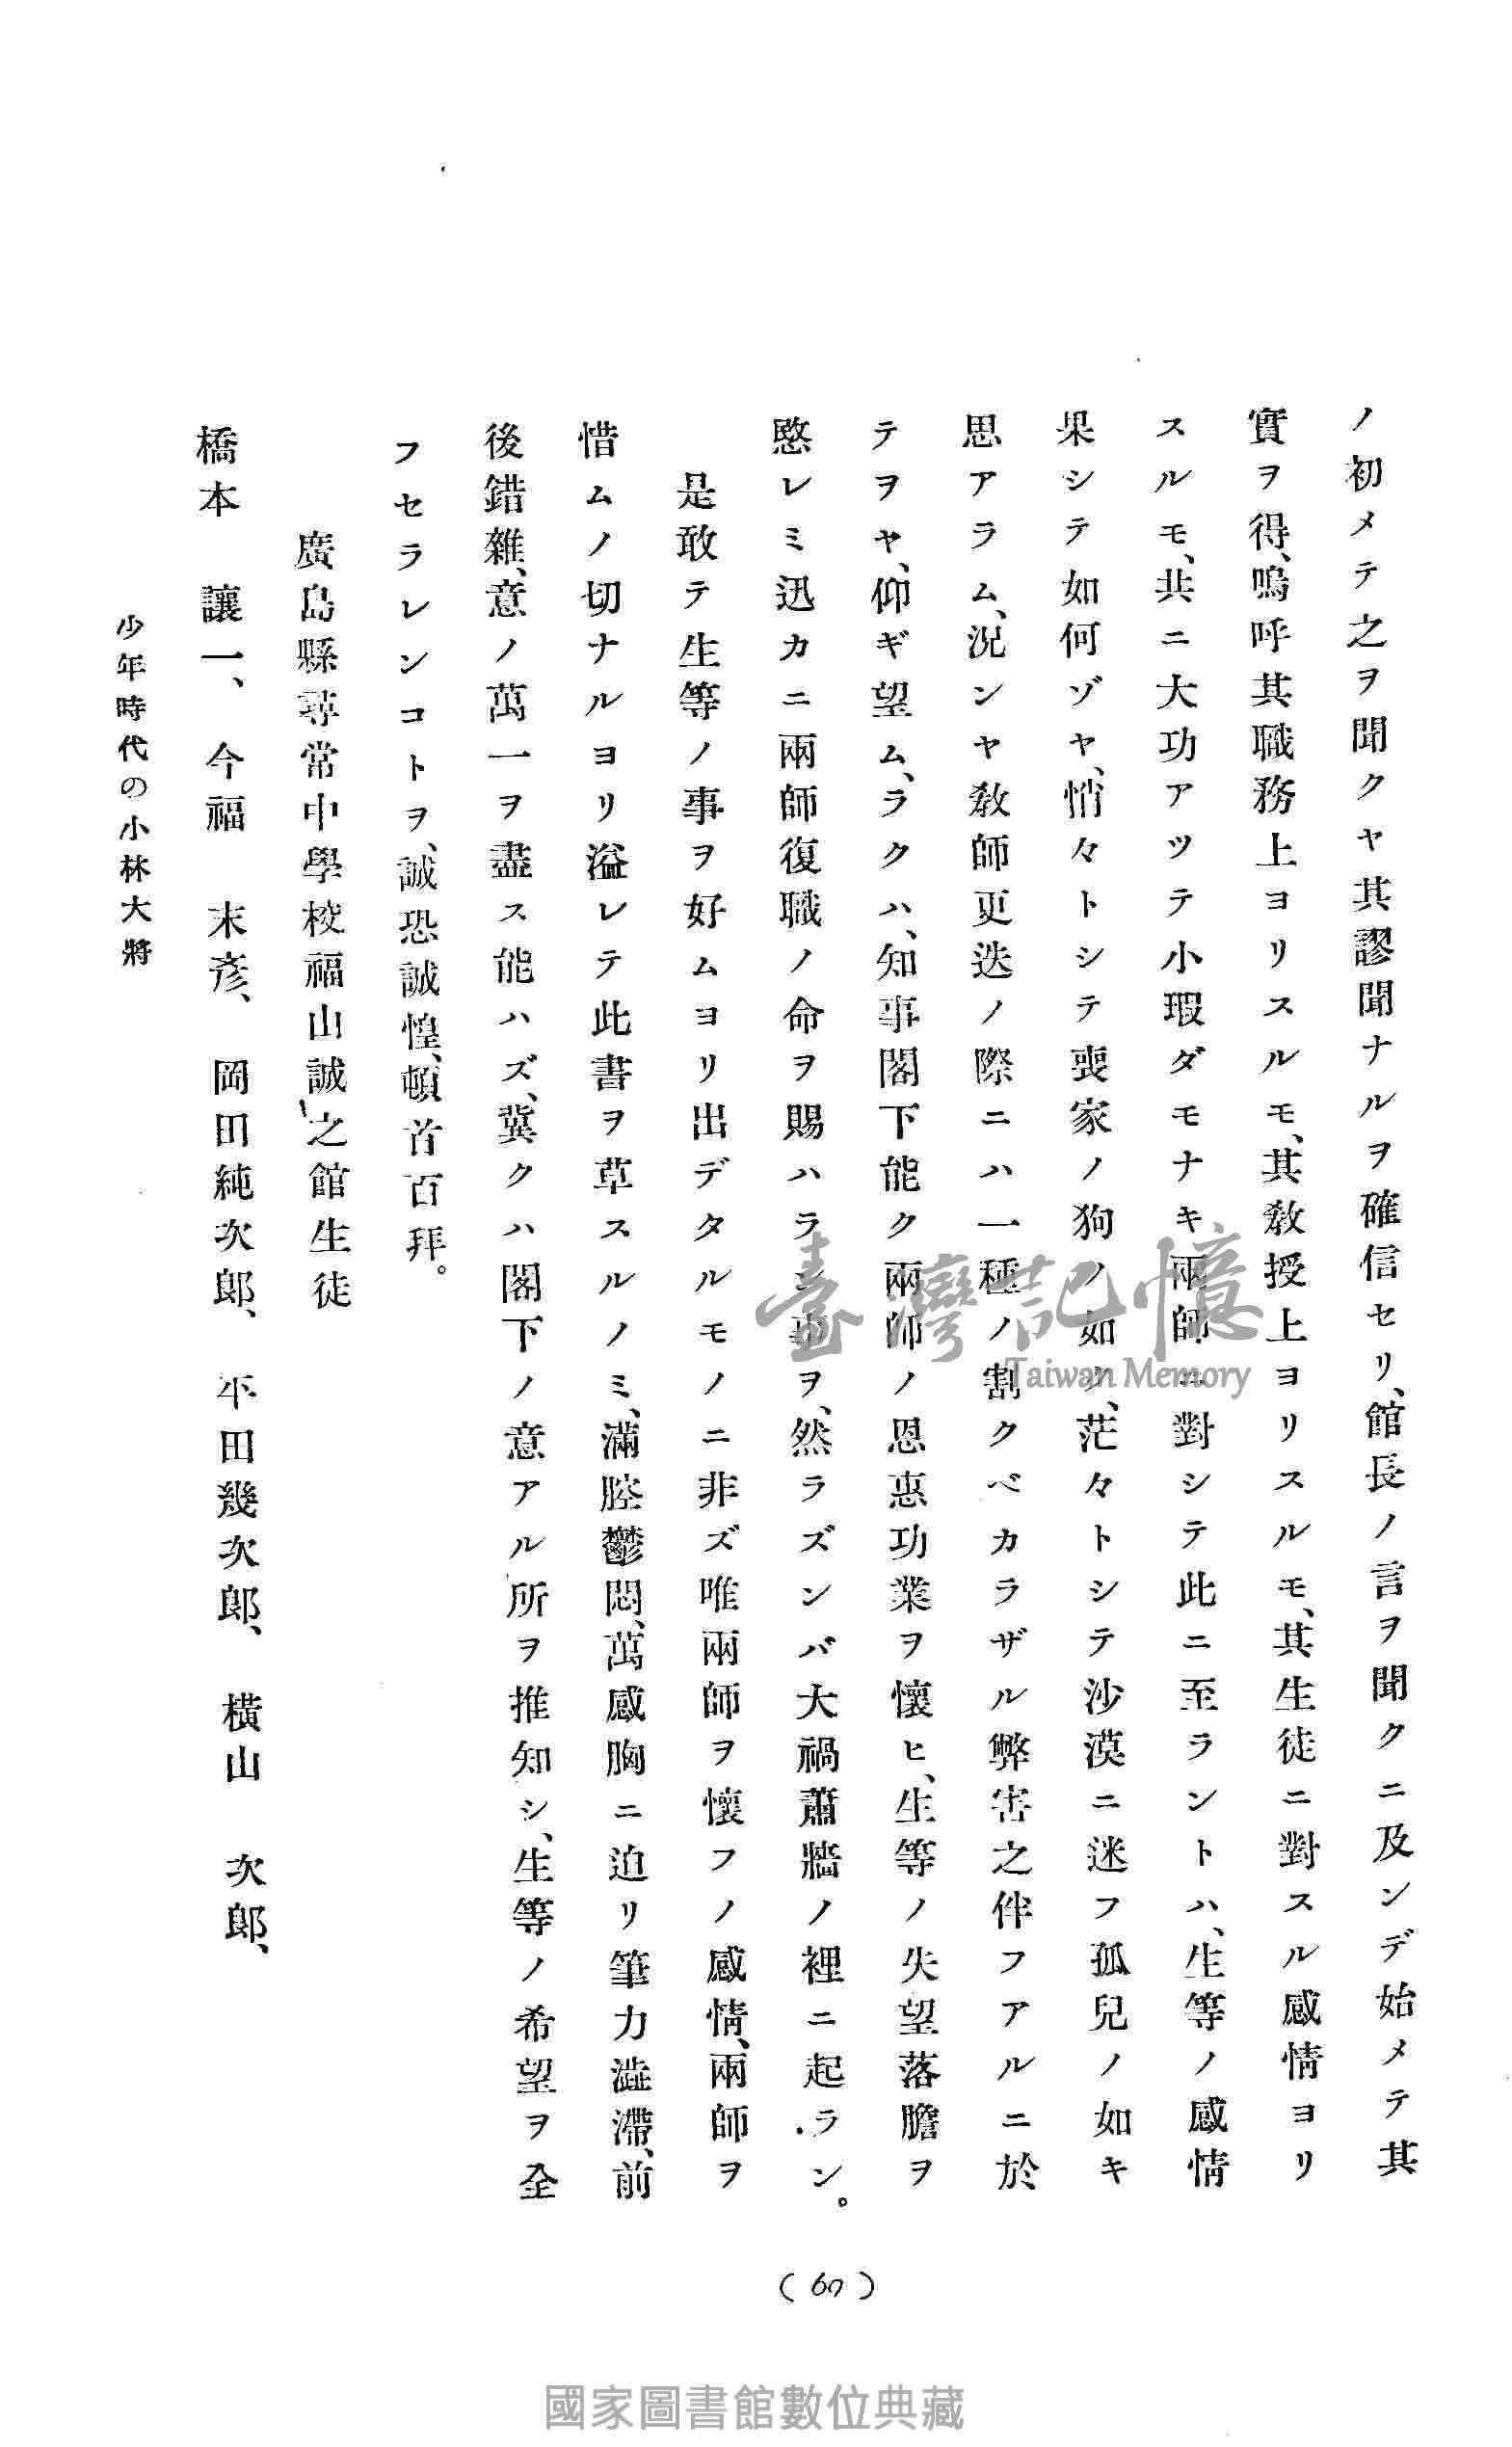 ノ初メテ之ヲ聞クヤ其謬聞ナルヲ確信セリ、館長ノ言ヲ聞クニ及ンデ始メテ其
實ヲ得、嗚呼其職務上ヨリスルモ、其敎授上ヨリスルモ、其生徒ニ對スル感情ヨリ
スルモ、共ニ大功アツテ小瑕ダモナキ兩師ニ對シテ此ニ至ラントハ、生等ノ感情
果シテ如何ゾヤ、悄々トシテ喪家ノ狗ノ如ク、茫々トシテ沙漠ニ迷フ孤兒ノ如キ
思アラム、況ンヤ敎師更迭ノ際ニハ一種ノ割クベカラザル弊害之伴フアルニ於
テヲヤ、仰ギ望ム、ラクハ、知事閣下能ク兩師ノ恩惠功業ヲ懷ヒ、生等ノ失望落膽ヲ
愍レミ迅カニ兩師復職ノ命ヲ賜ハラン事ヲ、然ラズンバ大禍蕭牆ノ裡ニ起ラン。
是敢テ生等ノ事ヲ好ムヨリ出デタルモノニ非ズ唯兩師ヲ懷フノ感情、兩師ヲ
惜ムノ切ナルヨリ溢レテ此書ヲ草スルノミ、滿腔鬱悶、萬感胸ニ迫リ筆力澁滯、前
後錯雜、意ノ萬一ヲ盡ス能ハズ、冀クハ閣下ノ意アル所ヲ推知シ、生等ノ希望ヲ全
フセラレンコトヲ、誠恐誠惶、頓首百拜。
廣島縣尋常中學校福山誠之館生徒
橋本　讓一、　今福　末彥、　岡田純次郎、　平田幾次郎、　橫山　次郎、
少年時代の小林大將
( 67 )
臺灣記憶
Taiwan Memory
國家圖書館數位典藏